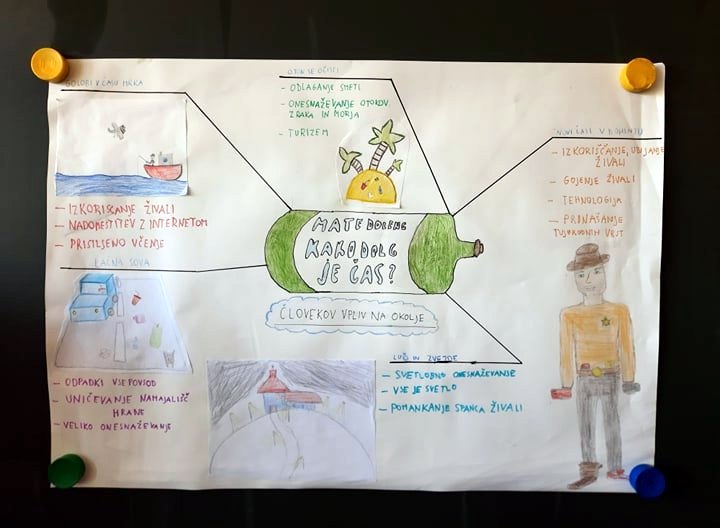 GOLOBI V ČASU MRKA
- IZKORIŠČANJE ŽIVALI
- NADOMESTITEV Z INTERNETOM
- PRISILJENO UČENJE
LAČNA SOVA
- ODPADKI VSEPOVSOD
- UNIČEVANJE NAHAJALIŠČ
HRANE
- VELIKO ONESNAŽEVANJE
OTOK SE OČISTI
- ODLAGANJE SMETI
- ONESNAŽEVANJE OTOKOV,
ZRAKA IN MORJA
- TURIZEM
MATE DOLENC
KAKO DOLG
JE ČAS?
ČLOVEKOV VPLIV NA OKOLJE
LUČ IN ZVEZDE
- SVETLOBNO ONESNAŽEVANJE
- VSE JE SVETLO
- POMANKANJE SPANCA ŽIVALI
NOVI ČASI V
- IZKORIŠČANJE, UBIJANJE
ŽIVALI
- GOJENJE ŽIVALI
- TEHNOLOGIJA
- PRINAŠANJE
TUJORODNIH VRST